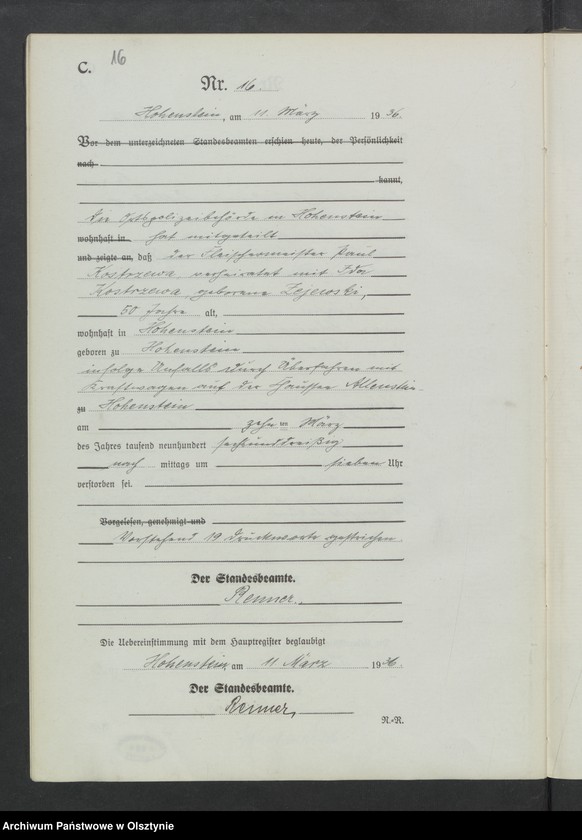 C. 16
Nr. 16.
Hohenstein, am 11. März 1936.
Vor dem unterzeichneten Standesbeamten erschien heute, der Persönlichkeit
nach
kannt,
Die Ortspolizeibehörde in Hohenstein
wohnhaft in hat mitgeteilt
und zeigte an, daß der Fleischermeister Paul
Kostrzewa verheiratet mit Ida
Kostrzewa geborene
50 Jahre alt,
wohnhaft in Hohenstein
geboren zu Hohenstein
infolge Unfalls durch Überfahren mit
Kraftwagen auf der Chaussee Allenstein
zu Hohenstein
am zehnten März
des Jahres tausend neunhundert sechsunddreißig
nach mittags um sieben Uhr
verstorben sei.
Vorgelesen, genehmigt und
Vorstehend 19 Druckworte gestrichen.
Der Standesbeamte.
Renner.
Die Uebereinstimmung mit dem Hauptregister beglaubigt
Hohenstein, am 11. März 1936.
Der Standesbeamte.
Renner.
R.-R.
Archiwum Państwowe w Olsztynie